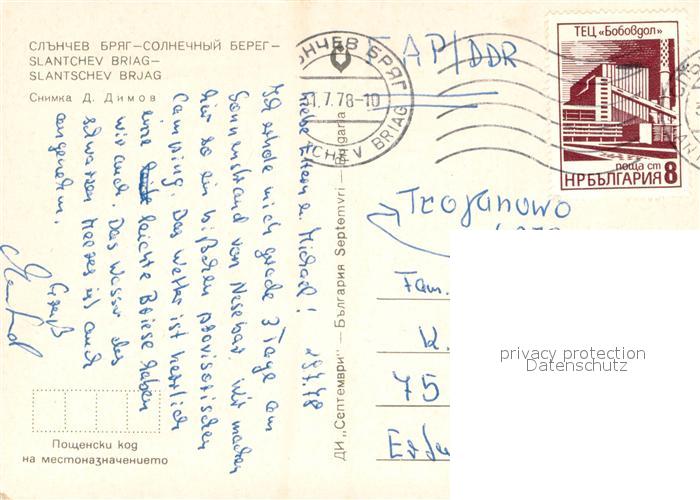 СЛЪНЧЕВ БРЯГ—СОЛНЕЧНЫЙ БЕРЕГ—
SLANTCHEV BRIAG—
SLANTSCHEV BRJAG
Снимка Д. Димов
ГАР/DDR
НЧЕВ БРЯГ
1.7.78-10
CHEV BRIAG
ТЕЦ „Бобовдол"
поща ст
НР БЪЛГАРИЯ 8
Liebe Eltern u. Michael! 29.7.78
Ich erhole mich grade 3 Tage am
Sonnenstrand von Nesebar. Wir machen
hier so ein bißchen provisorischen
Camping. Das Wetter ist herrlich
eine leichte Briese haben
wir auch. Das Wasser des
schwarzen Meeres ist auch
angenehm.
Gruß
ДИ „Септември" — България Septemvri — Bulgaria
Trojanowo
Fam.
K.
75
privacy protection
Datenschutz
Пощенски код
на местоназначението